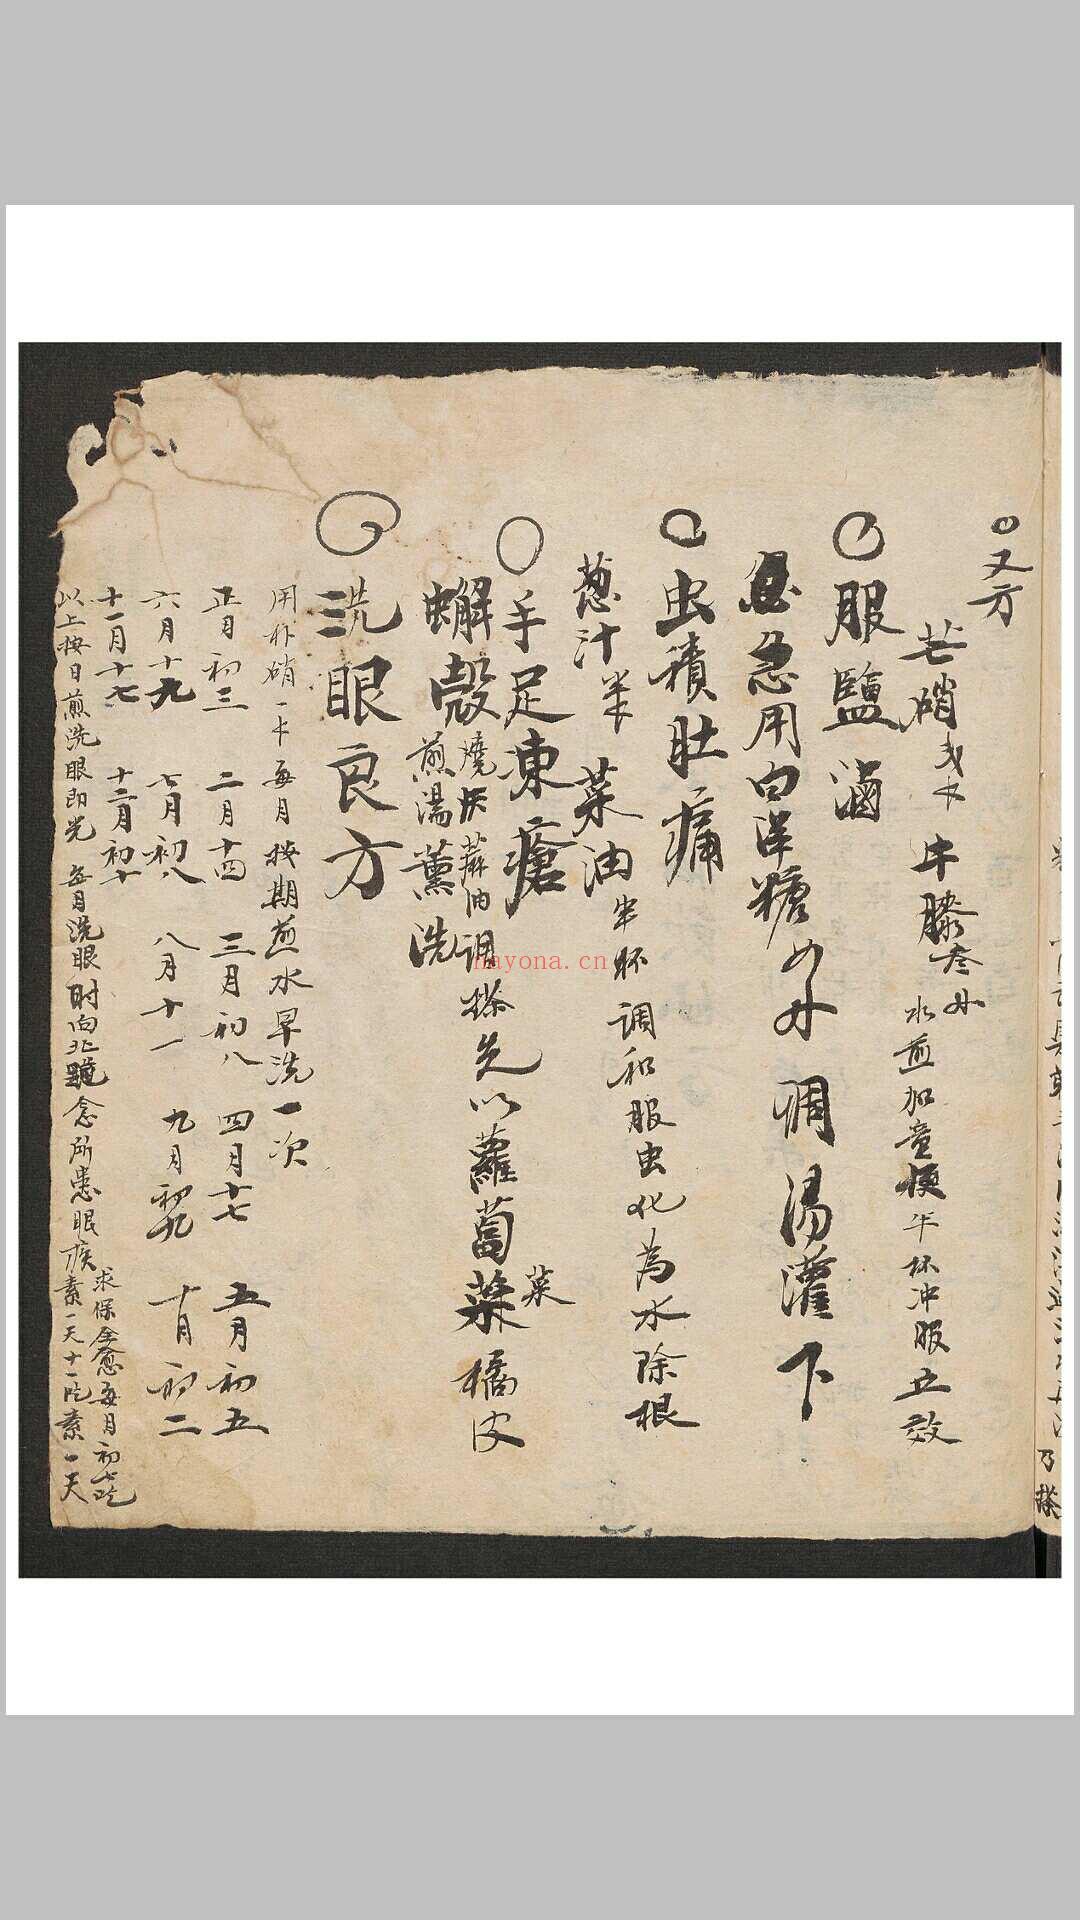 又方
芒硝 牛膝叁 水煎加童便半杯冲服立效
服鹽滷
急急用白洋糖 調湯灌下
虫積肚痛
葱汁半 菜油半杯調和服虫化為水除根
手足凍瘡
蠏殼燒灰蔴油調搽先以蘿蔔菜橘皮
菜
煎湯薰洗
洗眼良方
用朴硝一 每月按期煎水早洗一次
正月初三 二月十四 三月初八 四月十七 五月初五
六月十九 七月初八 八月十一 九月初九 十月初二
十一月十七 十二月初十
以上按日煎洗眼即光 每月洗眼時向北跪念所患眼疾求保全愈每月初七吃素一天十一吃素一天
乃搽
nayona.cn